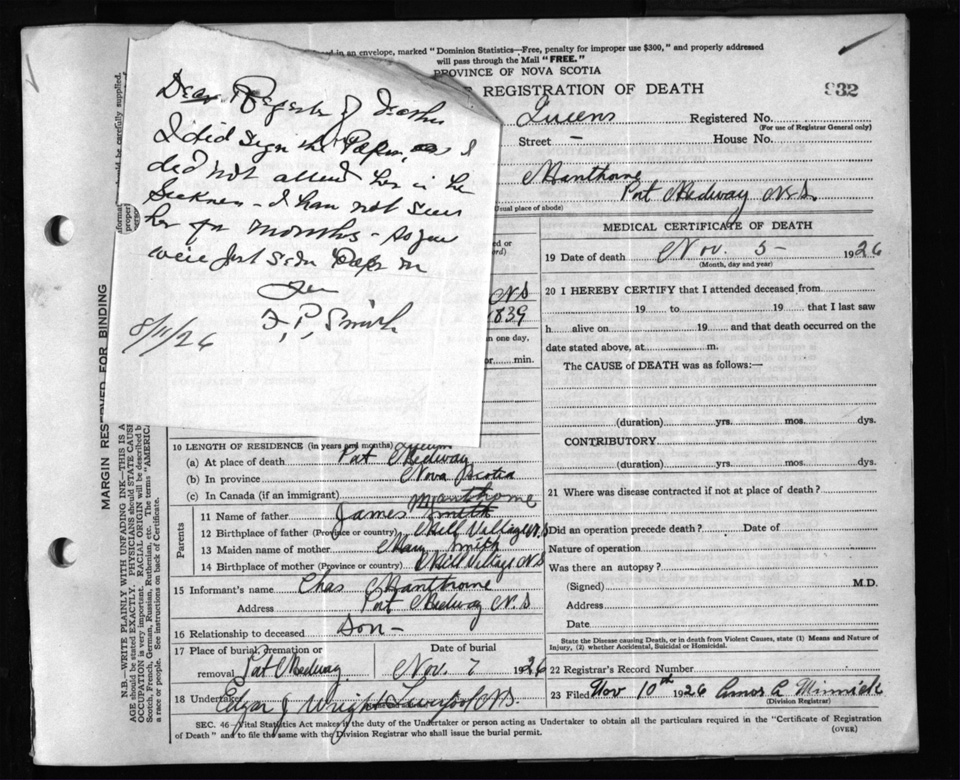 in an envelope, marked "Dominion Statistics—Free, penalty for improper use $300," and properly addressed
will pass through the Mail "FREE."
PROVINCE OF NOVA SCOTIA
REGISTRATION OF DEATH
932
Queens
Registered No.
(For use of Registrar General only)
Street —
House No.
Manthorne
Port Medway N.S.
(Usual place of abode)
Dear Register of Deaths
I did sign this Paper, as I
did not attend her in her
Sickness - I have not seen
her for months - so you
were just
F. P. Smith
8/11/26
N.S
1839
n one day,
or min.
MARGIN RESERVED FOR BINDING
N.B.—WRITE PLAINLY WITH UNFADING INK—THIS IS A
AGE should be stated EXACTLY. PHYSICIANS should STATE CAUSE
OCCUPATION is very important. RACIAL ORIGIN will be described b
Scotch, French, German, Russian, Ruthenian, etc. The terms "AMERICA
a race or people. See instructions on back of Certificate.
10 LENGTH OF RESIDENCE (in years and months)
(a) At place of death Port Medway
(b) In province Nova Scotia
(c) In Canada (if an immigrant)
Parents
Manthorne
11 Name of father James Smith
12 Birthplace of father (Province or country) Mill Village N.S
13 Maiden name of mother Mary Smith
14 Birthplace of mother (Province or country) Mill Village N.S
15 Informant's name Chas Manthorne
Address Port Medway N.S
16 Relationship to deceased Son —
17 Place of burial, cremation or removal Port Medway
Date of burial Nov. 7 1926
18 Undertaker Edgar J Wright Liverpool N.S.
MEDICAL CERTIFICATE OF DEATH
19 Date of death Nov. 5 — 1926
(Month, day and year)
20 I HEREBY CERTIFY that I attended deceased from
19 to 19 that I last saw
h alive on 19 and that death occurred on the
date stated above, at m.
The CAUSE of DEATH was as follows:—
(duration) yrs. mos. dys.
CONTRIBUTORY
(duration) yrs. mos. dys.
21 Where was disease contracted if not at place of death?
Did an operation precede death? Date of
Nature of operation
Was there an autopsy?
(Signed) M.D.
Address
Date
State the Disease causing Death, or in death from Violent Causes, state (1) Means and Nature of
Injury, (2) whether Accidental, Suicidal or Homicidal.
22 Registrar's Record Number
23 Filed Nov 10th 1926 Amos A Minnick
(Division Registrar)
SEC. 46—Vital Statistics Act makes it the duty of the Undertaker or person acting as Undertaker to obtain all the particulars required in the "Certificate of Registration
of Death" and to file the same with the Division Registrar who shall issue the burial permit.
(OVER)